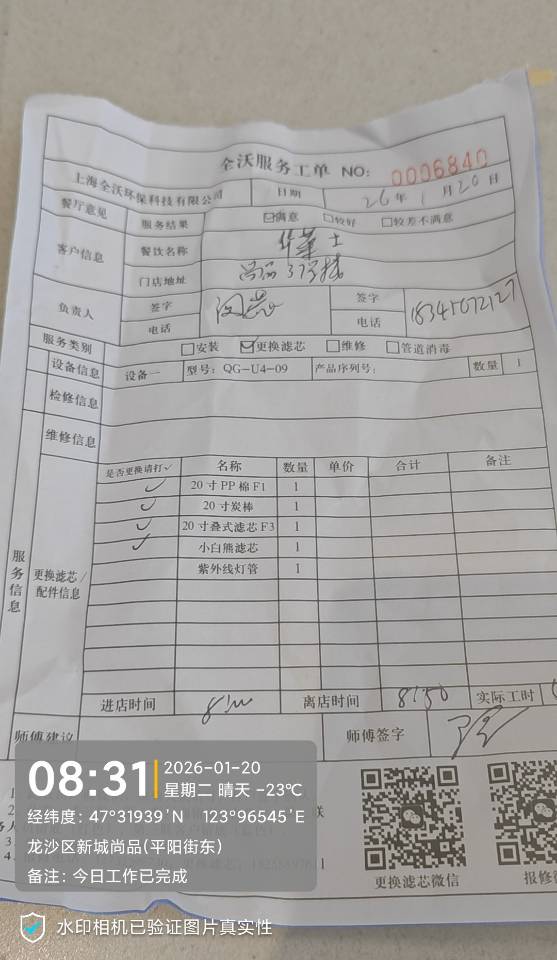 全沃服务工单 NO: 0006840
上海全沃环保科技有限公司 日期 26年1月20日
餐厅意见 服务结果 ☑满意 □较好 □较差不满意
客户信息 餐饮名称 华莱士
门店地址 尚品37号楼
负责人 签字 签字
电话 电话 18345072127
服务类别 □安装 ☑更换滤芯 □维修 □管道消毒
设备信息 设备一 型号: QG-U4-09 产品序列号: 数量 1
检修信息
维修信息
服务信息
更换滤芯/配件信息
是否更换请打✓ 名称 数量 单价 合计 备注
✓ 20寸PP棉F1 1
✓ 20寸炭棒 1
✓ 20寸叠式滤芯F3 1
✓ 小白熊滤芯 1
紫外线灯管 1
进店时间 离店时间 8:50 实际工时
师傅建议 师傅签字
08:31 2026-01-20
星期二 晴天 -23℃
经纬度: 47°31939′N 123°96545′E
龙沙区新城尚品(平阳街东)
备注: 今日工作已完成
更换滤芯微信 报修
水印相机已验证图片真实性